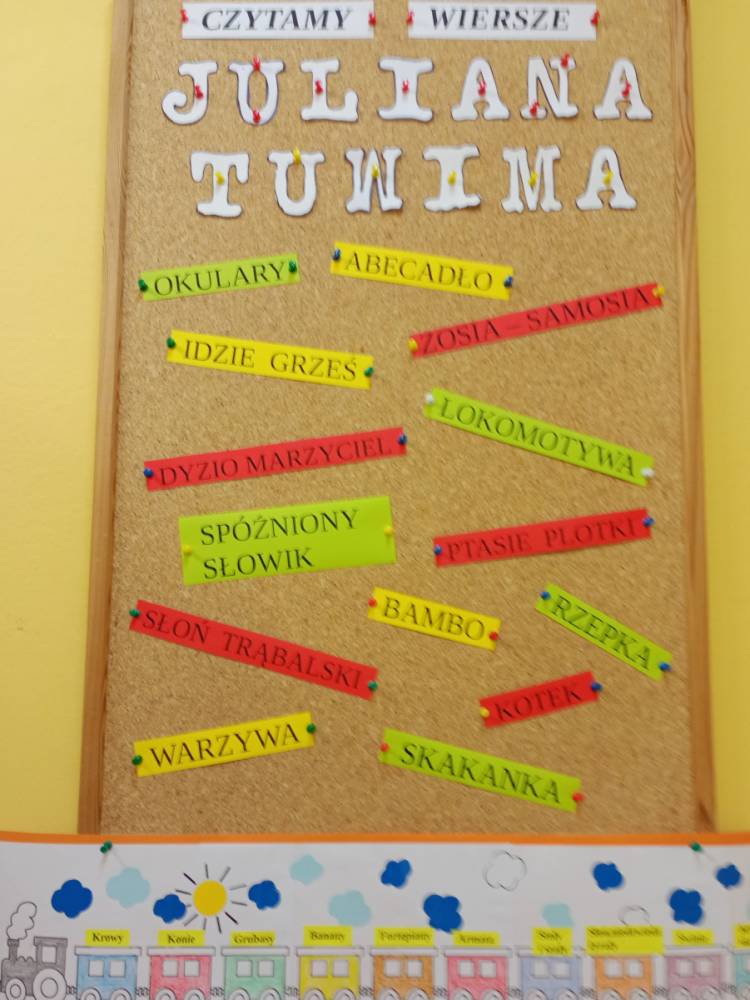 CZYTAMY WIERSZE
JULIANA
TUWIMA
OKULARY
ABECADŁO
ZOSIA – SAMOSIA
IDZIE GRZEŚ
LOKOMOTYWA
DYZIO MARZYCIEL
SPÓŹNIONY
SŁOWIK
PTASIE PLOTKI
BAMBO
RZEPKA
SŁOŃ TRĄBALSKI
KOTEK
WARZYWA
SKAKANKA
Krowy
Konie
Grubasy
Banany
Fortepiany
Armata